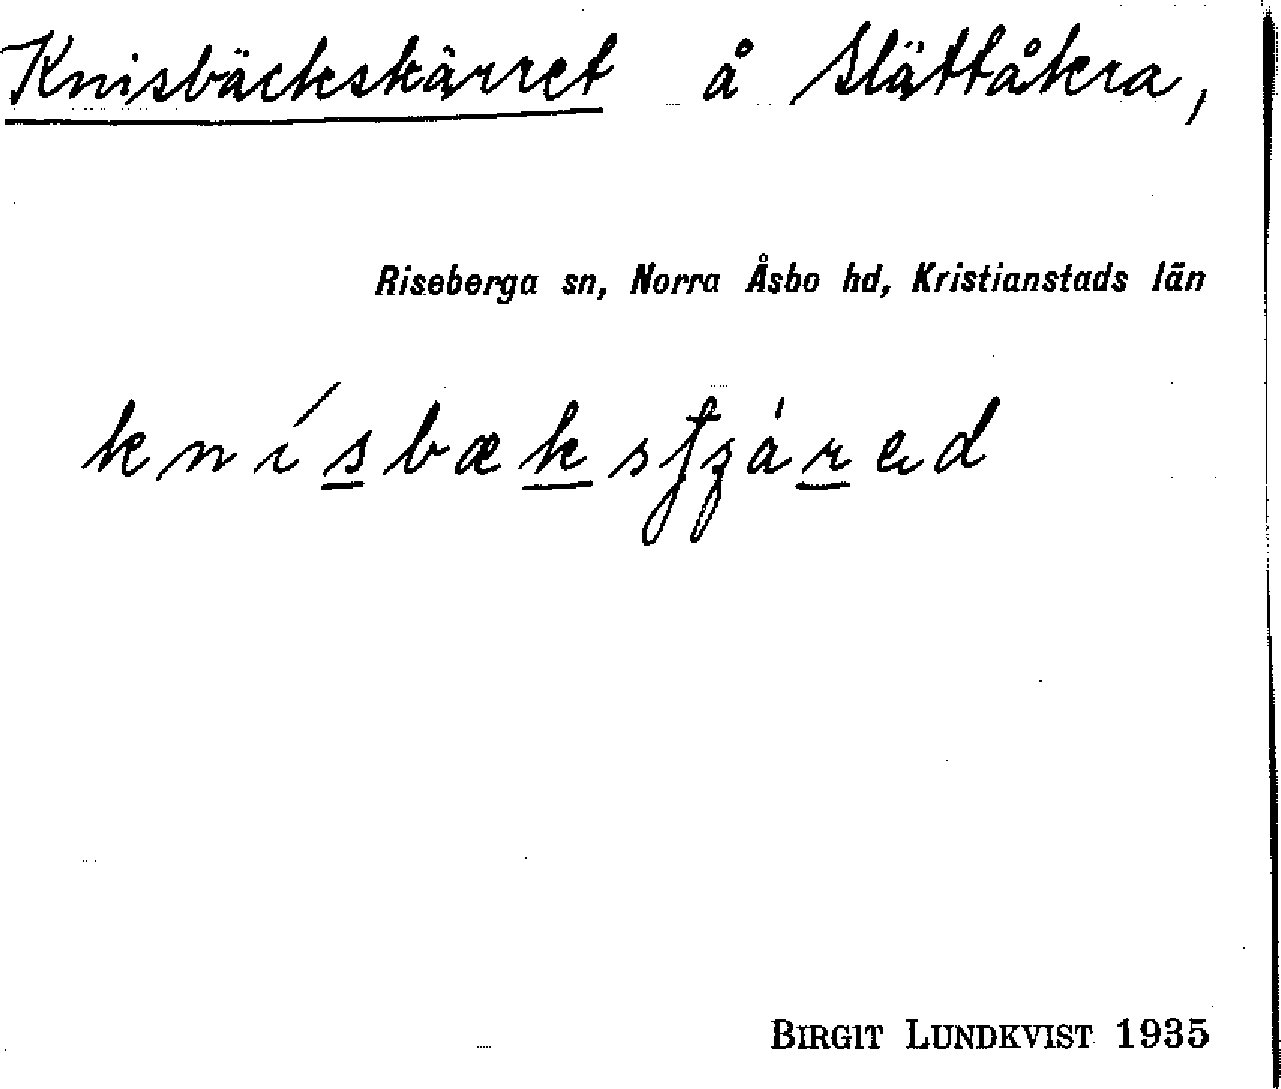 Knisbäckskärret å Slättåkra,
Riseberga sn, Norra Åsbo hd, Kristianstads län
BIRGIT LUNDKVIST 1935